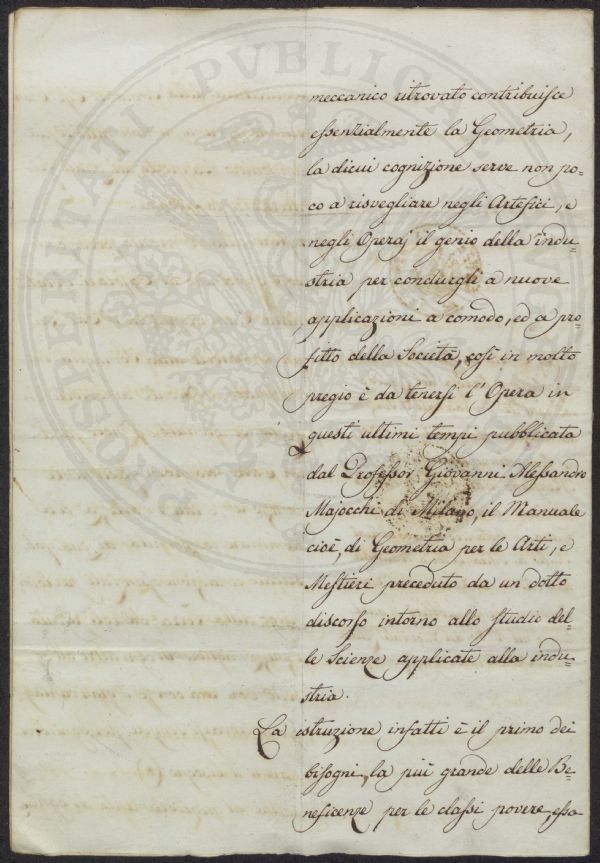 meccanico ritrovato contribuisce
essenzialmente la Geometria,
la dicui cognizione serve non po=
co a risvegliare negli Artefici, e
negli Operaj il genio della indu=
stria, per condurgli a nuove
applicazioni a comodo, ed a pro=
fitto della Società, così in molto
pregio è da tenersi l'Opera in
questi ultimi tempi pubblicata
dal Professor Giovanni Alessandro
Majocchi di Milano, il Manuale
cioè, di Geometria per le Arti, e
Mestieri preceduto da un dotto
discorso intorno allo studio del=
le Scienze applicate alla indu=
stria.
La istruzione infatti è il primo dei
bisogni, la più grande delle Be=
neficenze per le classi povere, essa
PROSPERITATI PVBLICAE